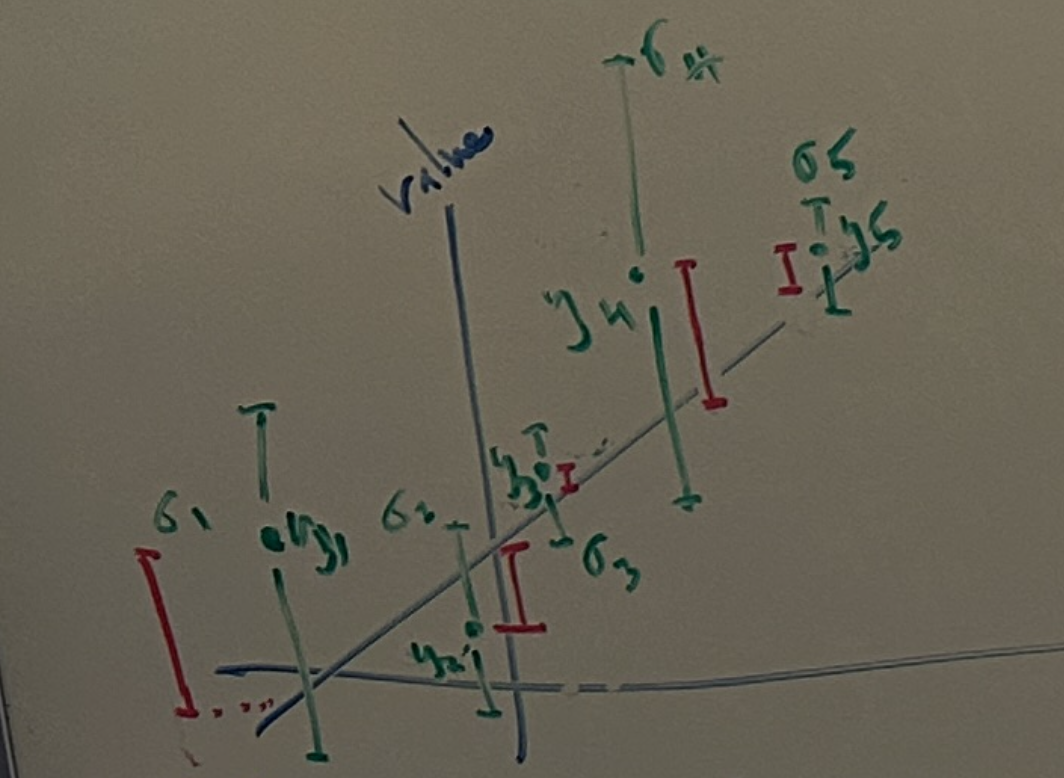 σ4
value
σ5
y5
y4
y3
σ1
y1
σ2
σ3
y2